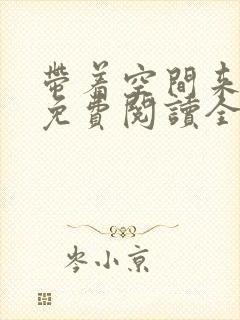 帶着空間來
免費閱讀全
岑小京